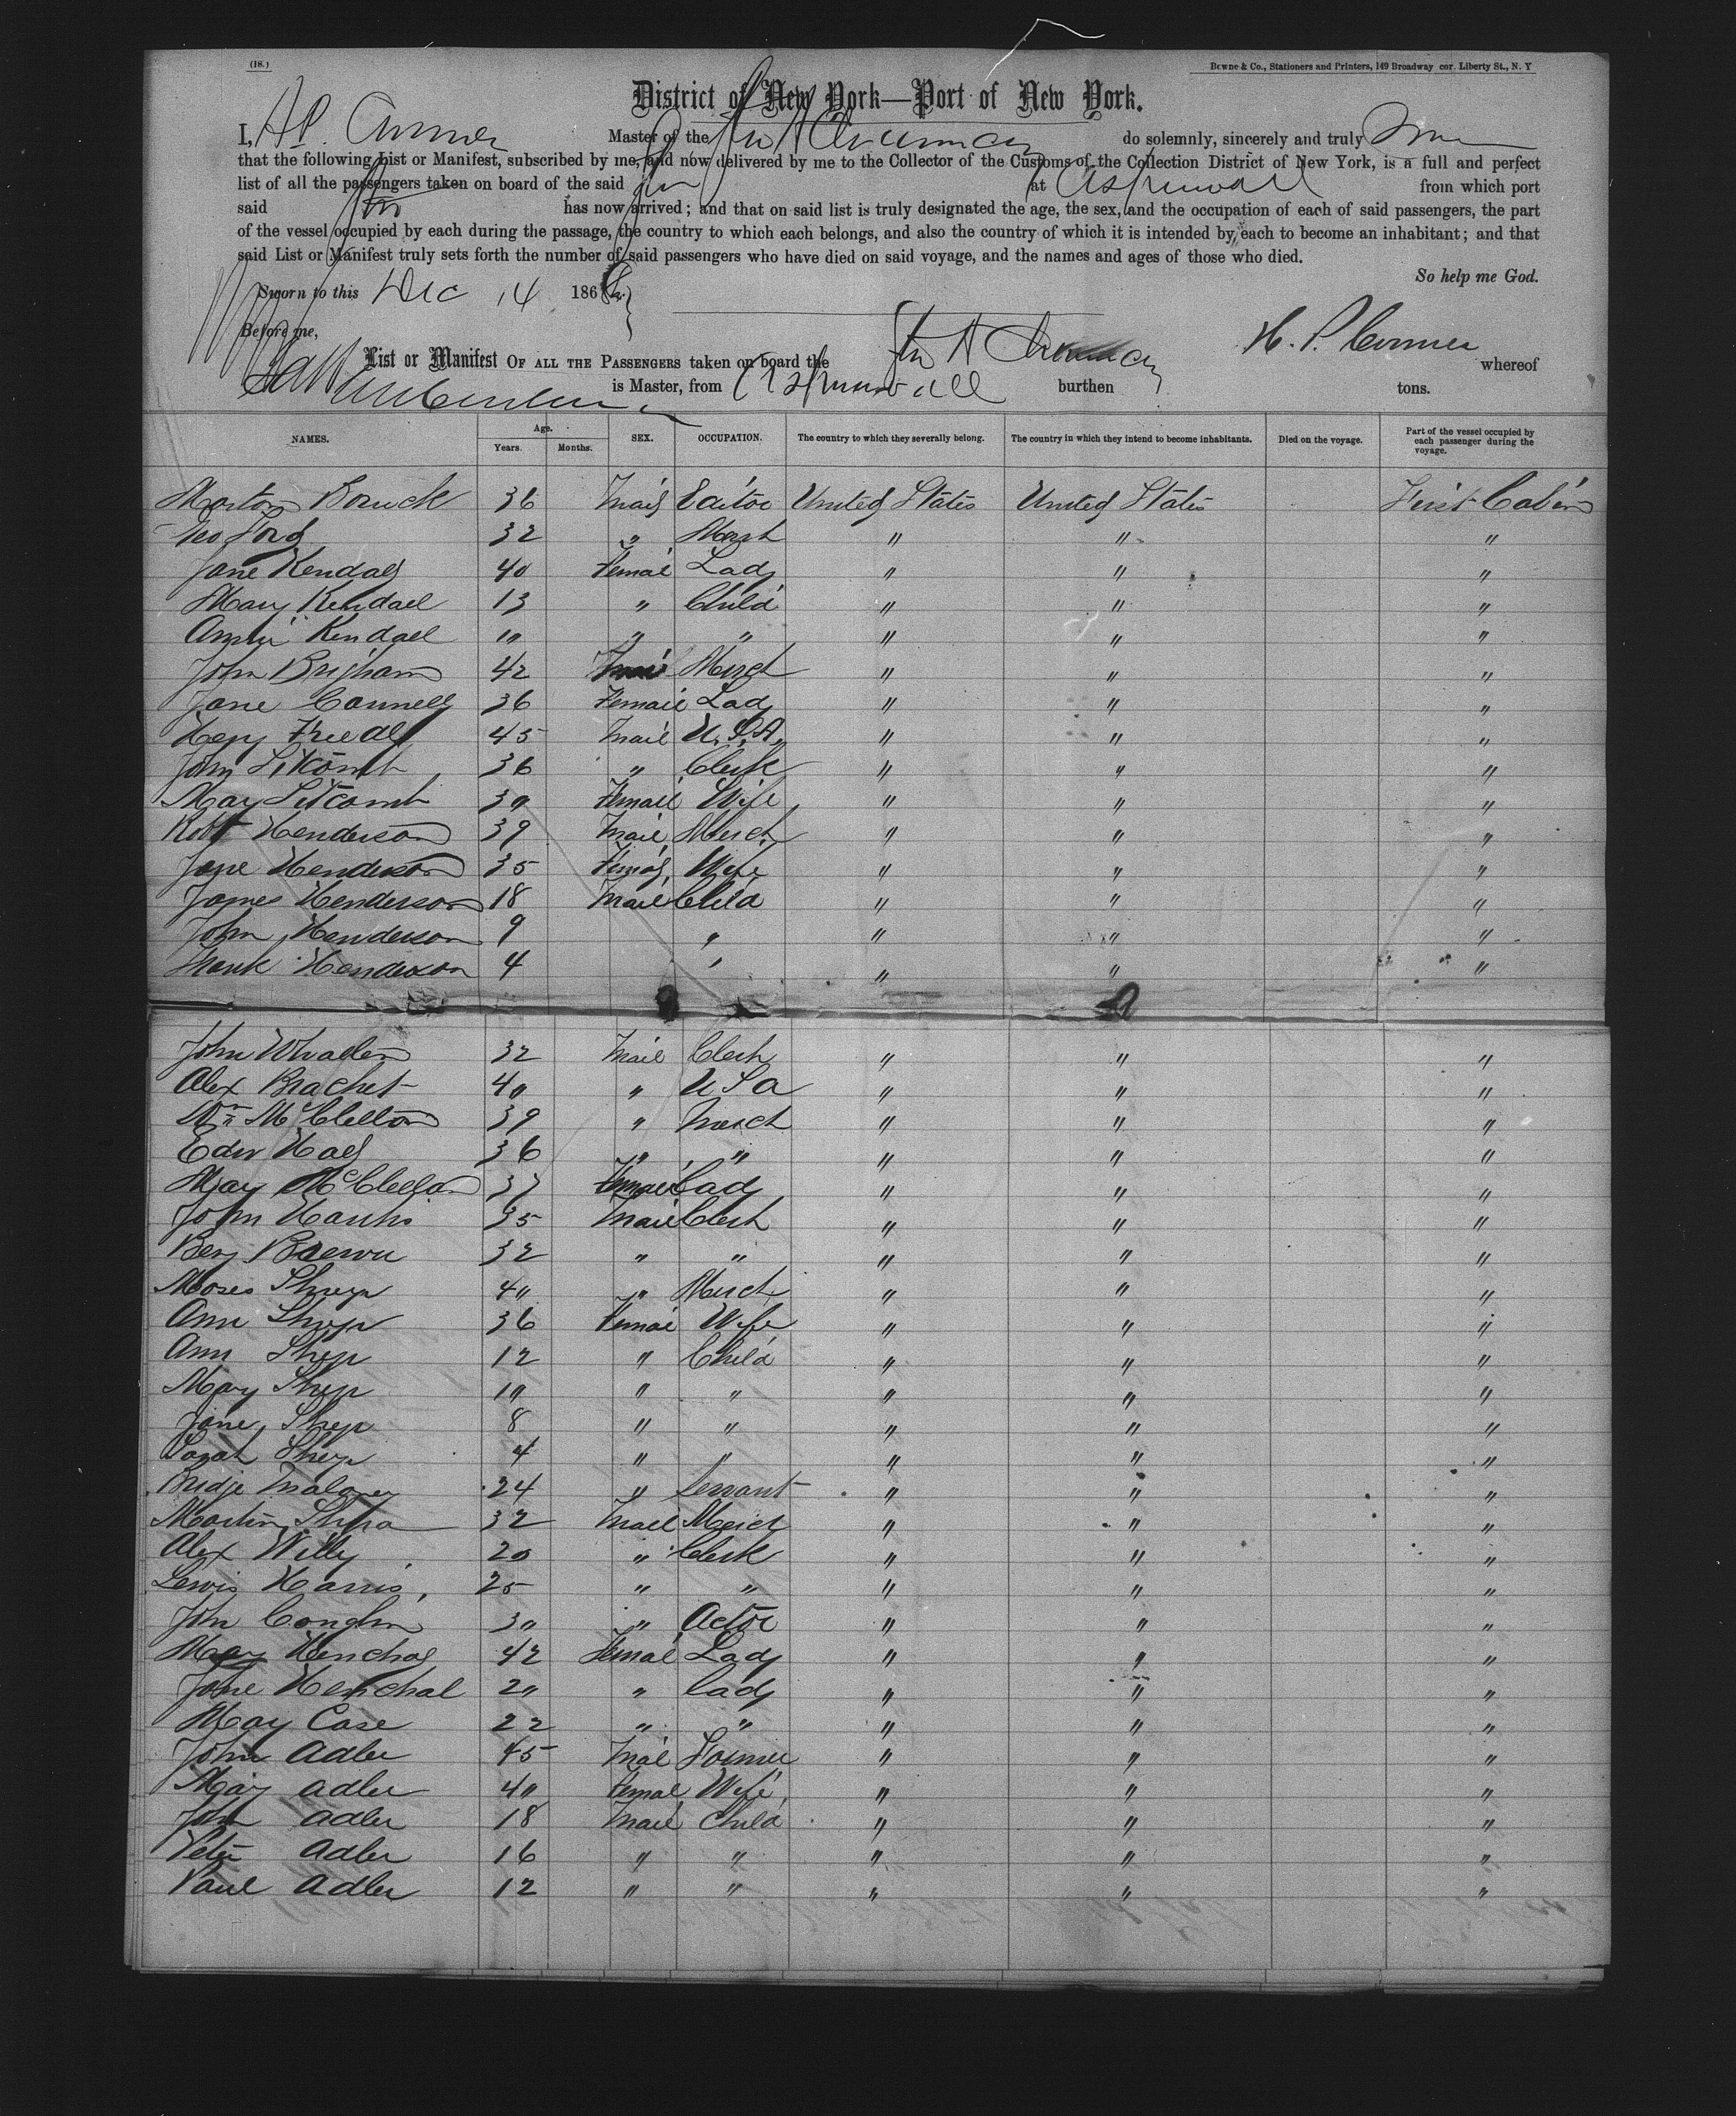 (18.)
Bowne & Co., Stationers and Printers, 149 Broadway cor. Liberty St., N. Y
District of New York—Port of New York.
I, H.P. Conner Master of the Str H Chauncey do solemnly, sincerely and truly
that the following List or Manifest, subscribed by me, and now delivered by me to the Collector of the Customs of the Collection District of New York, is a full and perfect
list of all the passengers taken on board of the said Str at Aspinwall from which port
said Str has now arrived; and that on said list is truly designated the age, the sex, and the occupation of each of said passengers, the part
of the vessel occupied by each during the passage, the country to which each belongs, and also the country of which it is intended by each to become an inhabitant; and that
said List or Manifest truly sets forth the number of said passengers who have died on said voyage, and the names and ages of those who died.
So help me God.
Sworn to this Dec 14 186
Before me,
H. P. Conner
List or Manifest OF ALL THE PASSENGERS taken on board the Str H Chauncey whereof
is Master, from Aspinwall burthen tons.
NAMES. Age. Years. Months. SEX. OCCUPATION. The country to which they severally belong. The country in which they intend to become inhabitants. Died on the voyage. Part of the vessel occupied by each passenger during the voyage.
Boruck 36 Mail Editor United States United States First Cabin
Geo Ford 32 " " " "
Jane Kendall 40 Femail Lady " " "
Mary Kendall 13 " Child " " "
Annie Kendall 10 " " " " "
John Brigham 42 Merch " " "
Jane Connell 36 Femail Lady " " "
45 Mail U.S.A. " " "
John Titcomb 36 " Clerk " " "
May Titcomb 30 Femail Wife " " "
Robt Henderson 39 Mail Merch " " "
Jane Henderson 35 Femal Wife " " "
James Henderson 18 Mail Child " " "
John Henderson 9 " " " "
Frank Henderson 4 " " " "
John Whalen 32 Mail Clerk " " "
Alex Brachet 40 " U S A " " "
Wm McClellan 39 " Merch " " "
Edw Hall 36 " " " " "
May McClellan 37 Femail Lady " " "
John 35 Mail Clerk " " "
Benj Brown 32 " " " " "
Moses 40 " Merch " " "
Ann 36 Femail Wife " " "
Ann 12 " Child " " "
Mary 10 " " " " "
Jane 8 " " " " "
Sarah 4 " " " " "
Bridje Maloney 24 " Servant " " "
Martin 32 Mail Merch " " "
Alex Willy 20 " Clerk " " "
Lewis Harris 25 " " " " "
John Conghn 30 " Actor " " "
Mary Henchal 42 Femal Lady " " "
Jane Henchal 20 " Lady " " "
May Case 22 " " " " "
John Adler 45 Mail Farmer " " "
May Adler 40 Femal Wife " " "
John Adler 18 Mail Child " " "
Peter Adler 16 " " " " "
Paul Adler 12 " " " " "